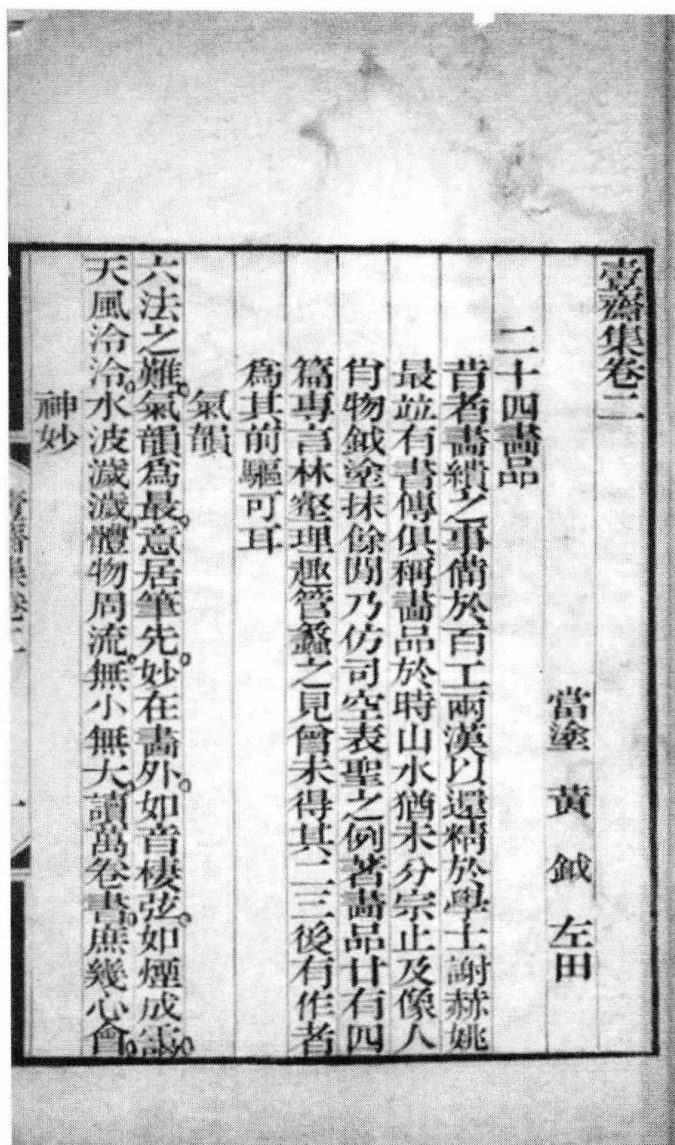 壹齋集卷二
當塗 黃 鉞 左田
二十四畵品
昔者畵繢之事備於百工兩漢以還精於學士謝赫姚
最竝有書傳俱稱畵品於時山水猶未分宗止及像人
肖物鉞塗抹餘閒乃仿司空表聖之例著畵品廿有四
篇專言林壑理趣管蠡之見曾未得其二三後有作者
爲其前驅可耳
氣韻
六法之難氣韻爲最意居筆先妙在畵外如音棲弦如煙成靄
天風泠泠水波瀎瀎體物周流無小無大讀萬卷書庶幾心會
神妙
壹齋集卷二
一